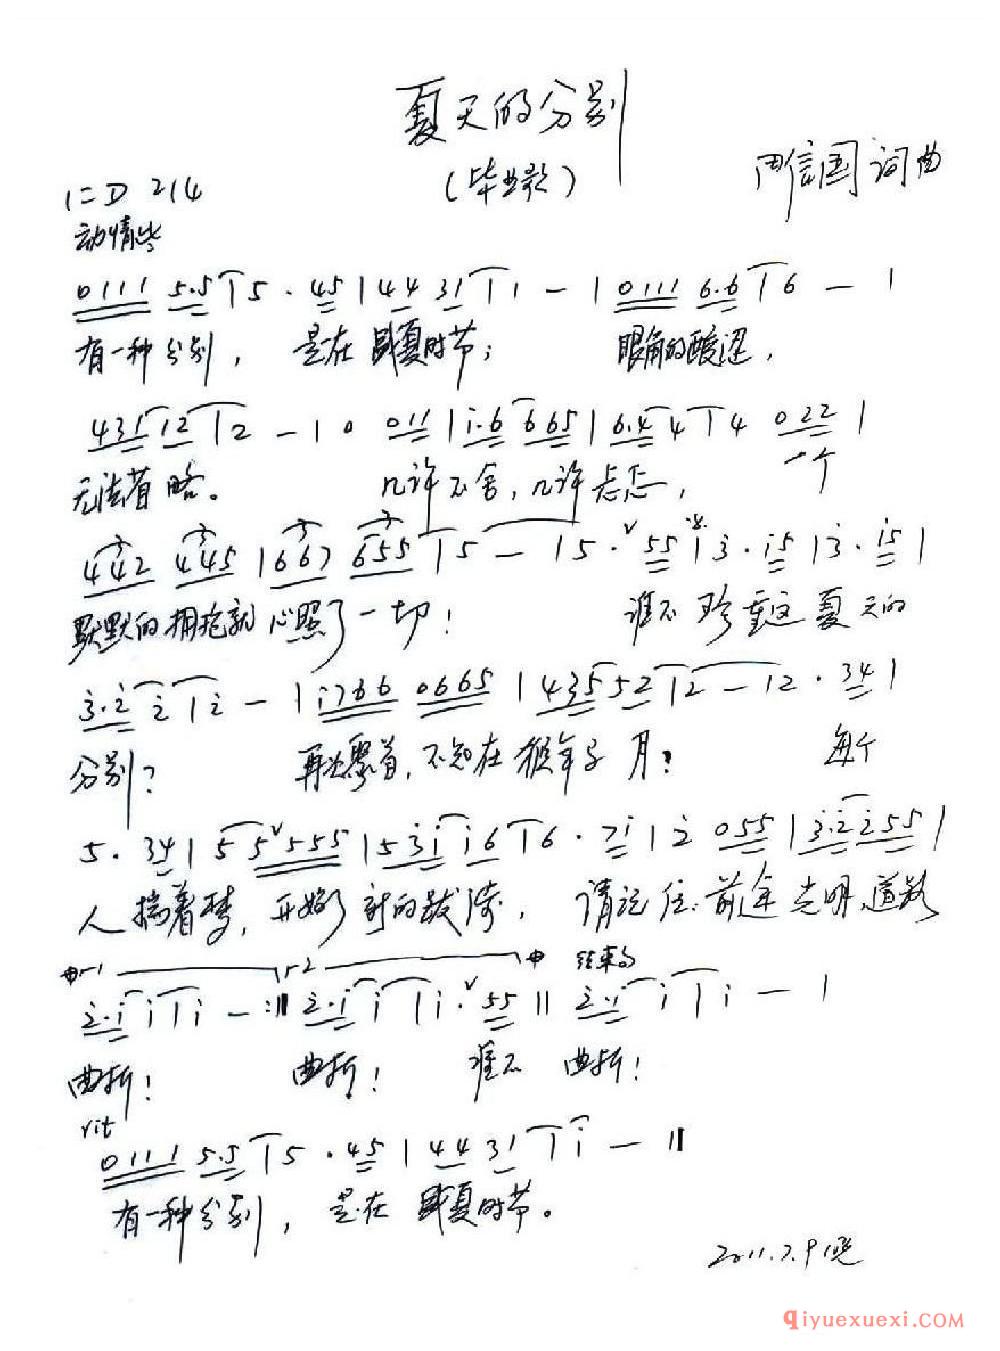 夏天的分别
(毕业歌)
词曲
1=D 2/4
动情地
0111 5.5 | 5 . 45 | 44 31 | 1 - | 0111 6.6 | 6 - |
有一种分别， 是在盛夏时节； 眼角的酸涩，
431 12 | 2 - | 0 011 | i.6 665 | 6.4 4 | 4 022 |
无法省略。 几许不舍，几许忐忑， 一个
442 445 | 667 655 | 5 - | 5 . 55 | 3 . i5 | 3 . i5 |
默默的拥抱就心照了一切！ 谁不珍重这夏天的
3.2 2 | 2 - | i766 0665 | 435 52 | 2 - | 2 . 34 |
分别？ 再次聚首，不知在猴年马月？ 每个
5 . 34 | 5 5 555 | 53i i6 | 6 . 7i | 2 055 | 3.2 255 |
人揣着梦，开始了新的跋涉， 请记住：前途光明，道路
1 2 结束句
2.i i | i - :‖ 2.i i | i . 55 ‖ 2.i i | i - |
曲折！ 曲折！ 谁不 曲折！
rit
0111 5.5 | 5 . 45 | 44 31 | i - ‖
有一种分别，是在盛夏时节。
2011.7.9
qiyuexuexi.com